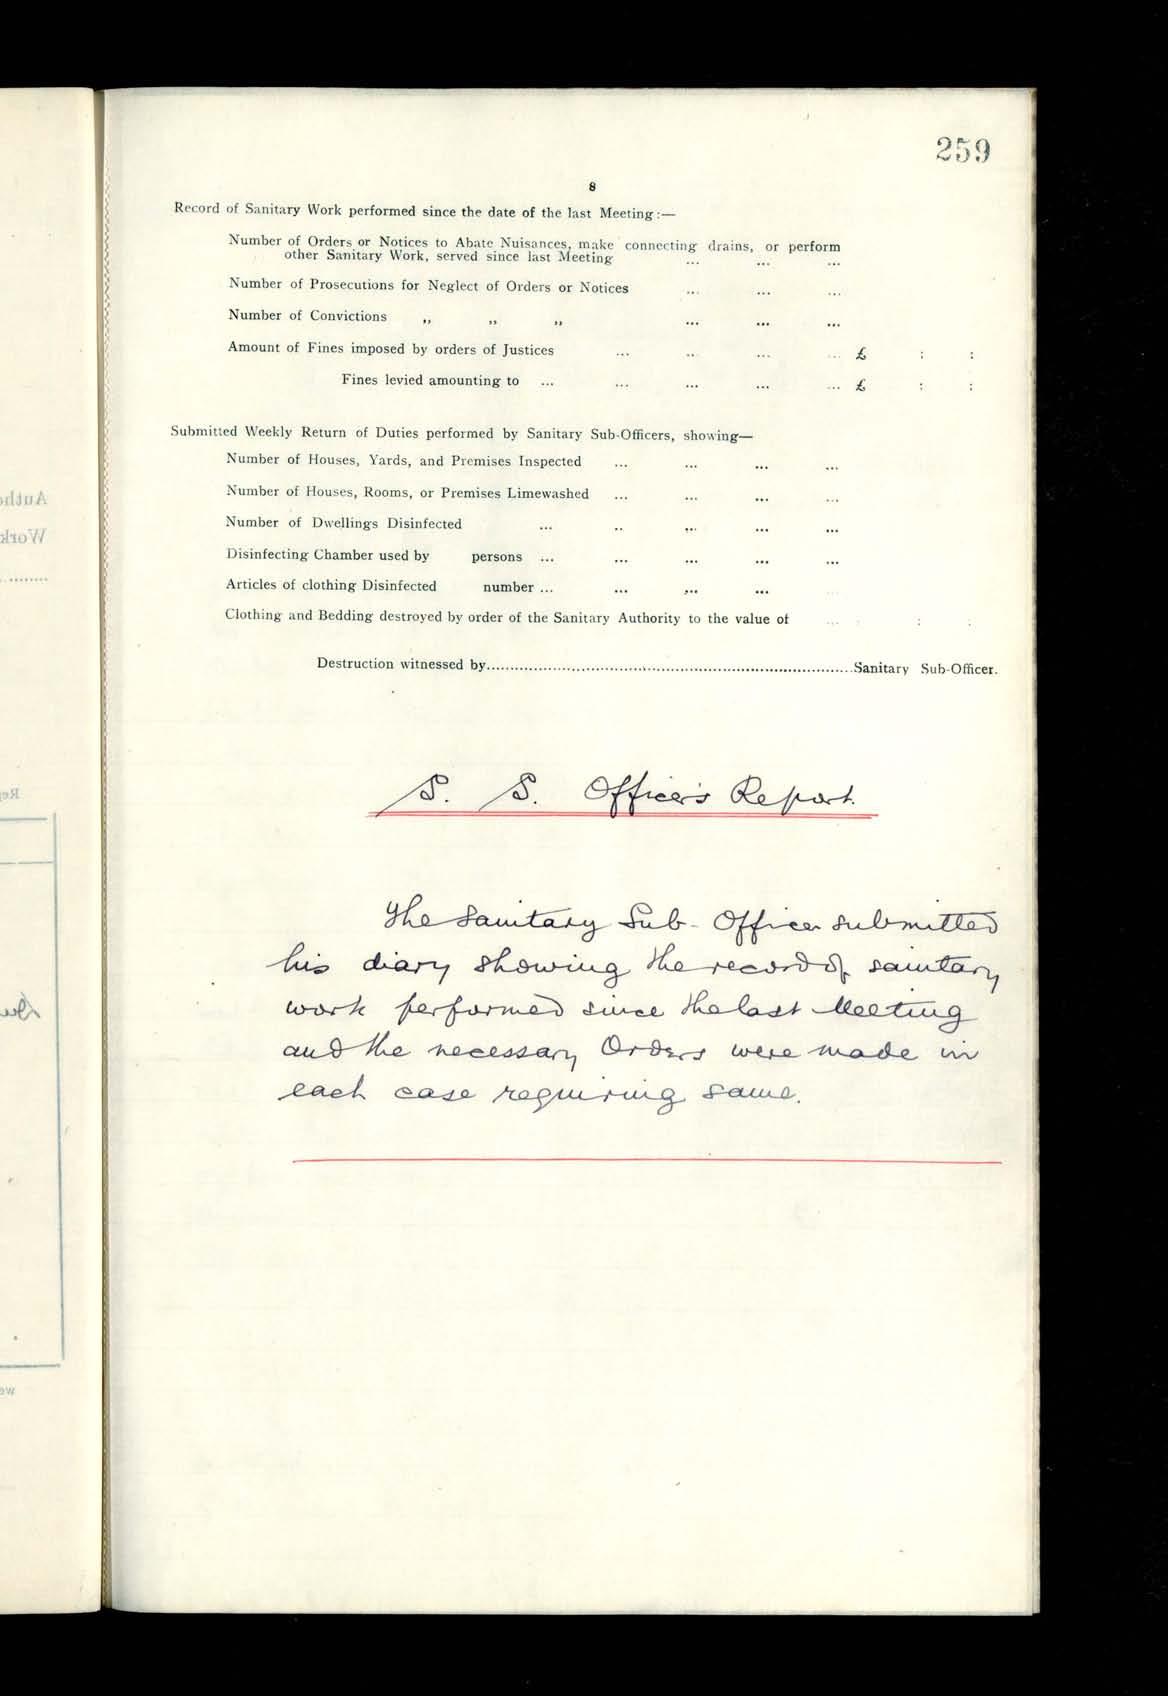 259
8
Record of Sanitary Work performed since the date of the last Meeting:—
Number of Orders or Notices to Abate Nuisances, make connecting drains, or perform
other Sanitary Work, served since last Meeting ... ... ...
Number of Prosecutions for Neglect of Orders or Notices ... ... ...
Number of Convictions „ „ „ ... ... ...
Amount of Fines imposed by orders of Justices ... ... ... ... £ : :
Fines levied amounting to ... ... ... ... ... £ : :
Submitted Weekly Return of Duties performed by Sanitary Sub-Officers, showing—
Number of Houses, Yards, and Premises Inspected ... ... ... ...
Number of Houses, Rooms, or Premises Limewashed ... ... ... ...
Number of Dwellings Disinfected ... .. ... ... ...
Disinfecting Chamber used by persons ... ... ... ... ...
Articles of clothing Disinfected number ... ... ... ... ...
Clothing and Bedding destroyed by order of the Sanitary Authority to the value of ... : :
Destruction witnessed by..............................................................................Sanitary Sub-Officer.
S. S. Officer's Report.
The Sanitary Sub-Officer submitted
his diary showing the record of sanitary
work performed since the last Meeting
and the necessary Orders were made in
each case requiring same.